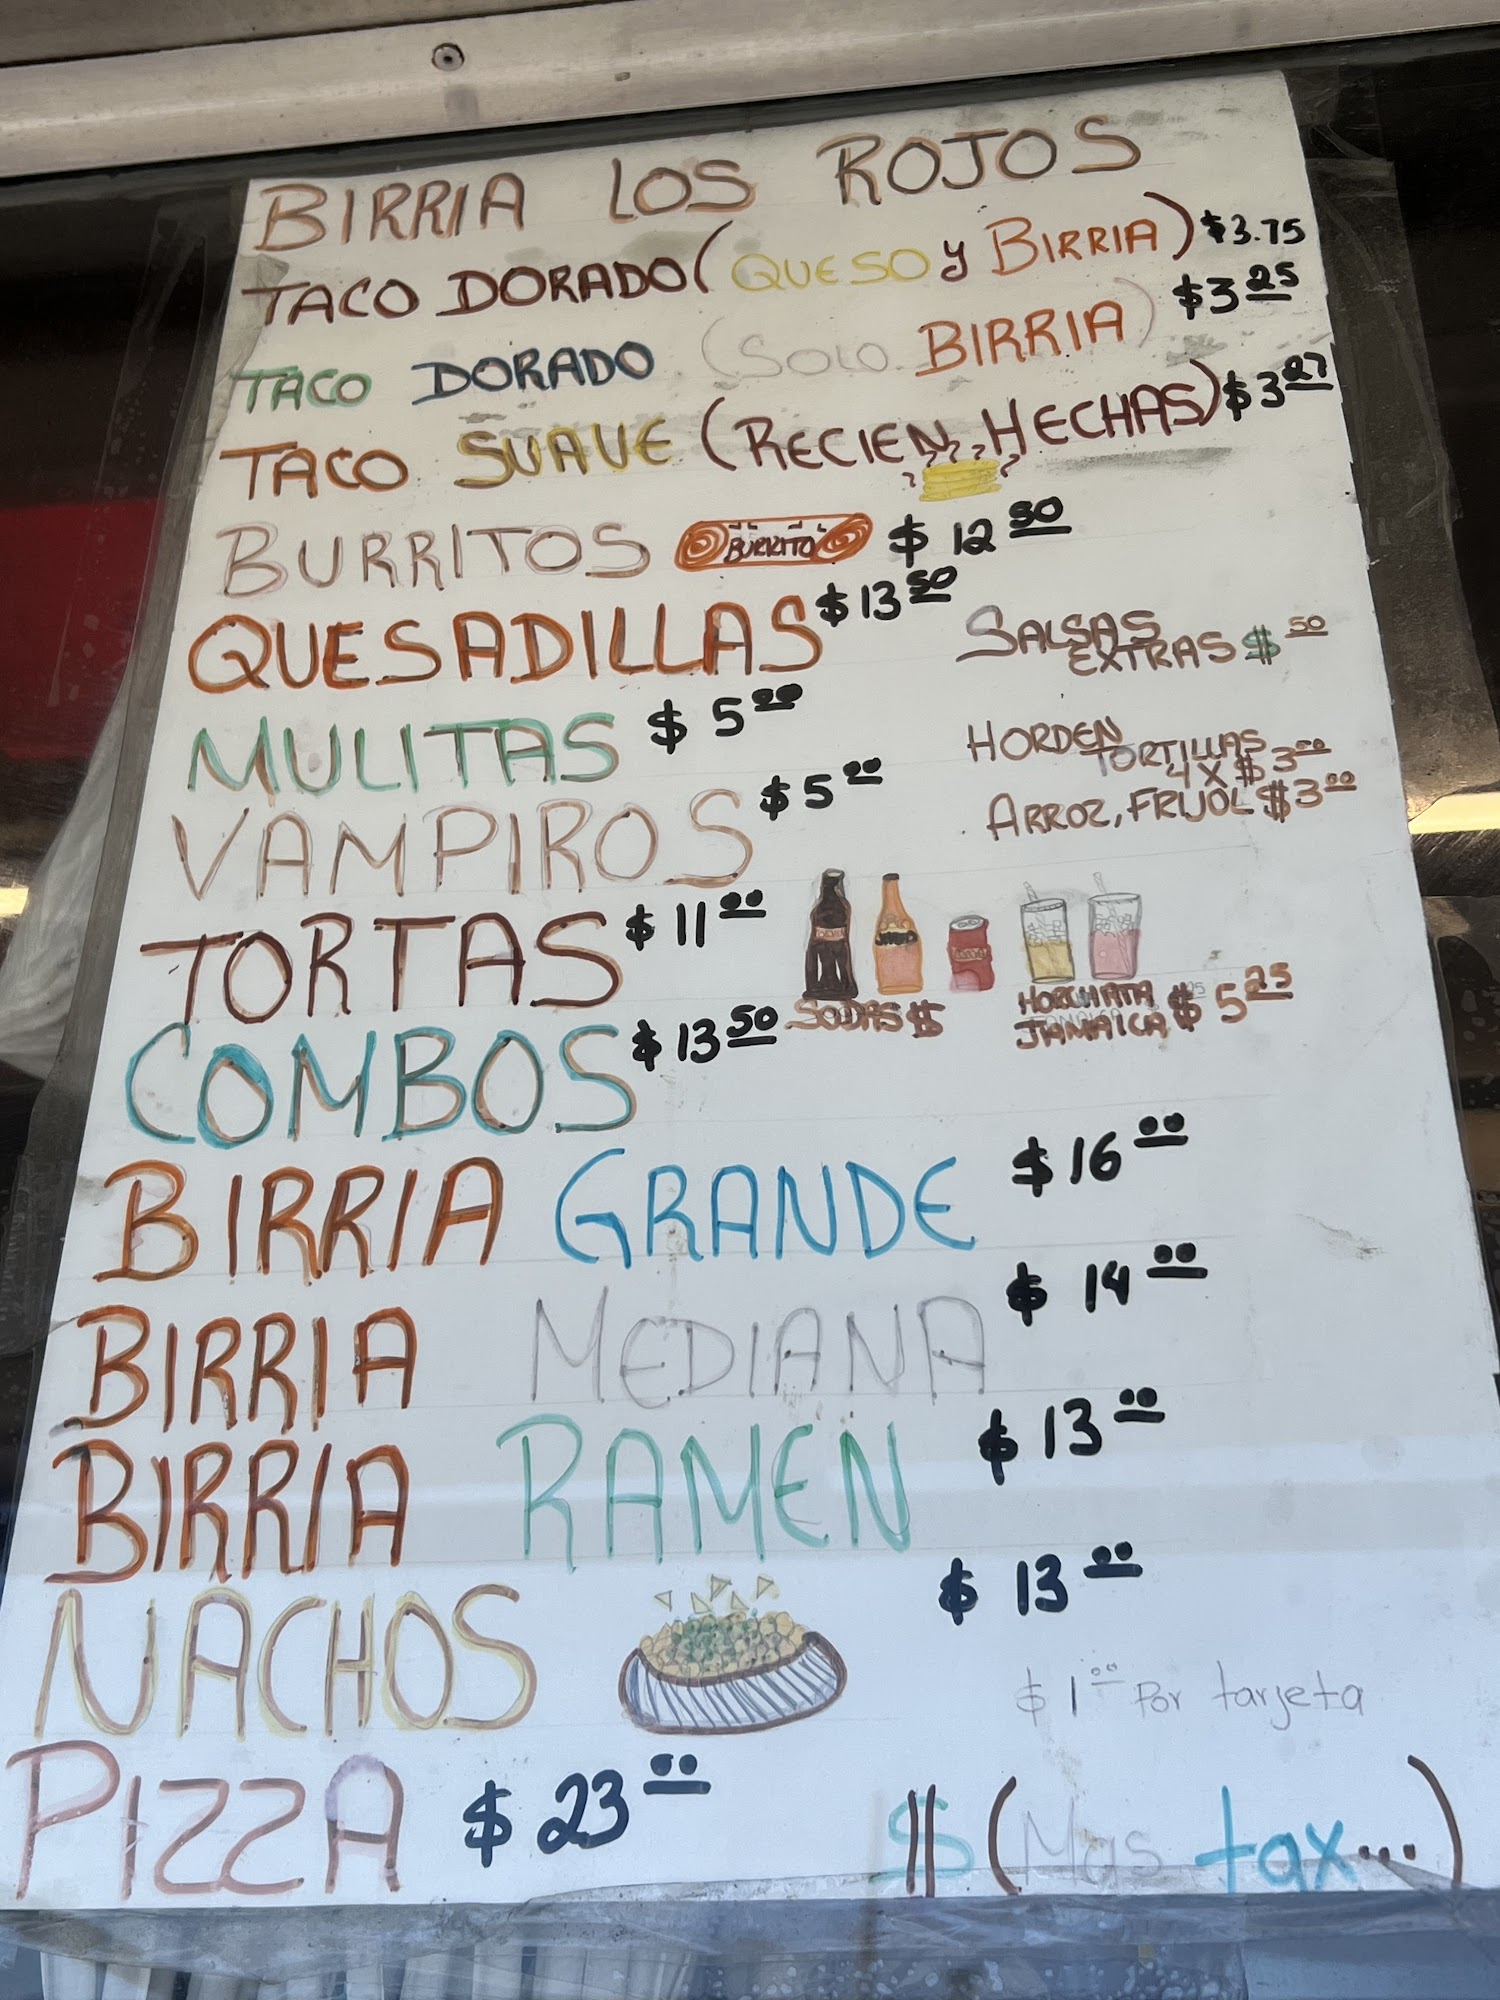 BIRRIA LOS ROJOS
TACO DORADO (QUESO y BIRRIA) $3.75
TACO DORADO (SOLO BIRRIA) $3 25
TACO SUAVE (RECIEN HECHAS) $3 27
BURRITOS BURRITO $12 50
QUESADILLAS $13 50
SALSAS
EXTRAS $ 50
MULITAS $5 00
HORDEN
TORTILLAS
4 X $3 00
VAMPIROS $5 00
ARROZ, FRIJOL $3 00
TORTAS $11 00
SODAS $
HORCHATA
JAMAICA $5 25
COMBOS $13 50
BIRRIA GRANDE $16 00
BIRRIA MEDIANA $14 00
BIRRIA RAMEN $13 00
NACHOS $13 00
$1 00 Por tarjeta
PIZZA $23 00
$ (Mas tax...)